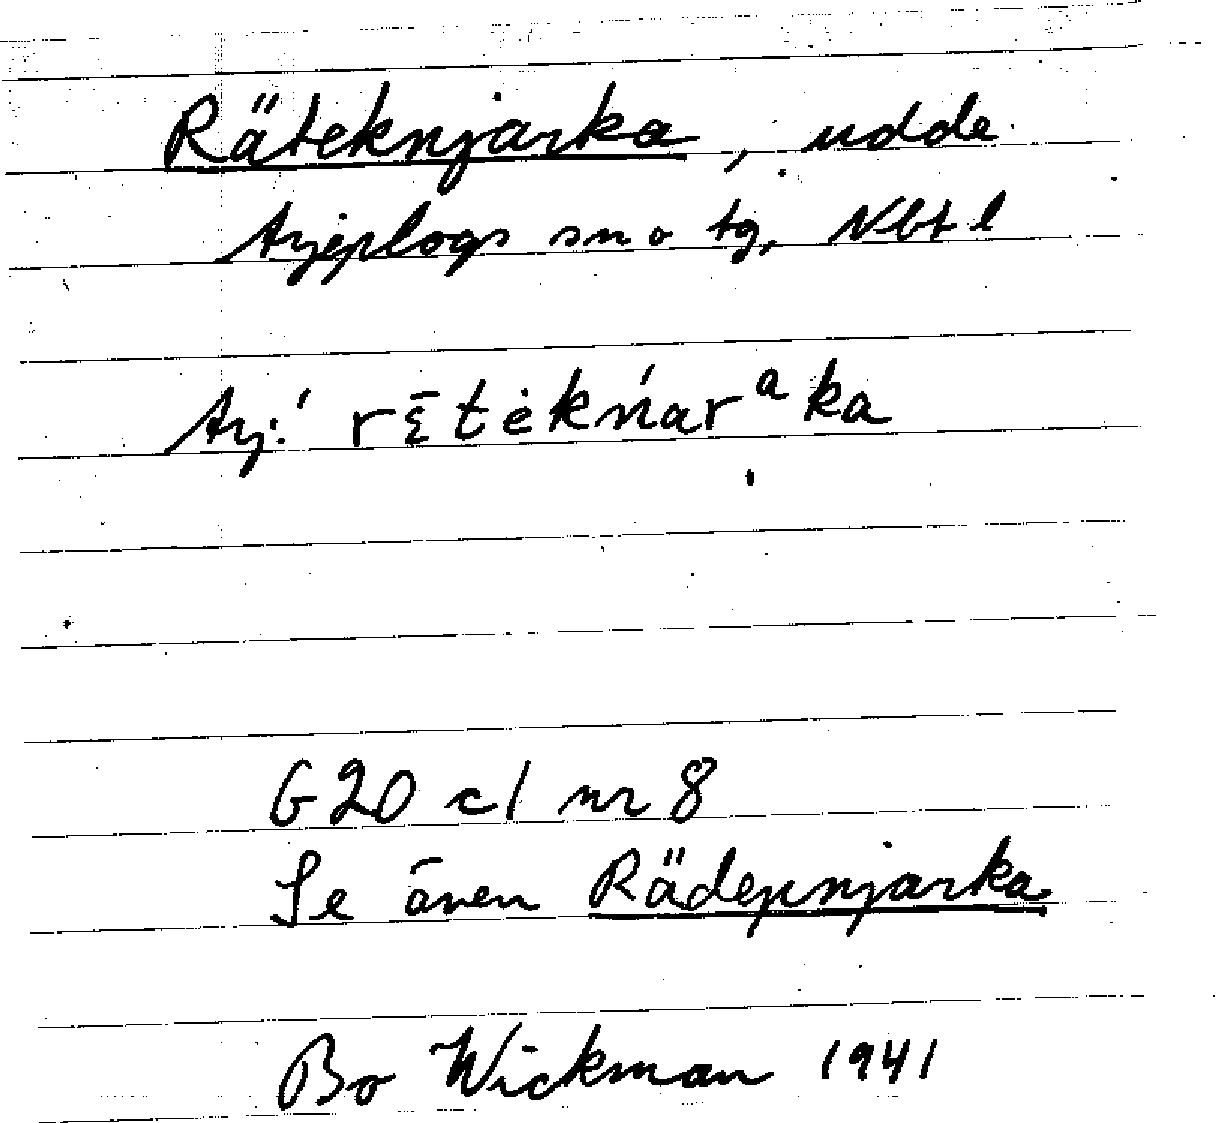 Räteknjarka, udde
Arjeplogs sn o tg, Nbtl
Arj: ' rε̄tėkńarᵃka
G20 c1 nr 8
Se även Rädejenjarka
Bo Wickman 1941